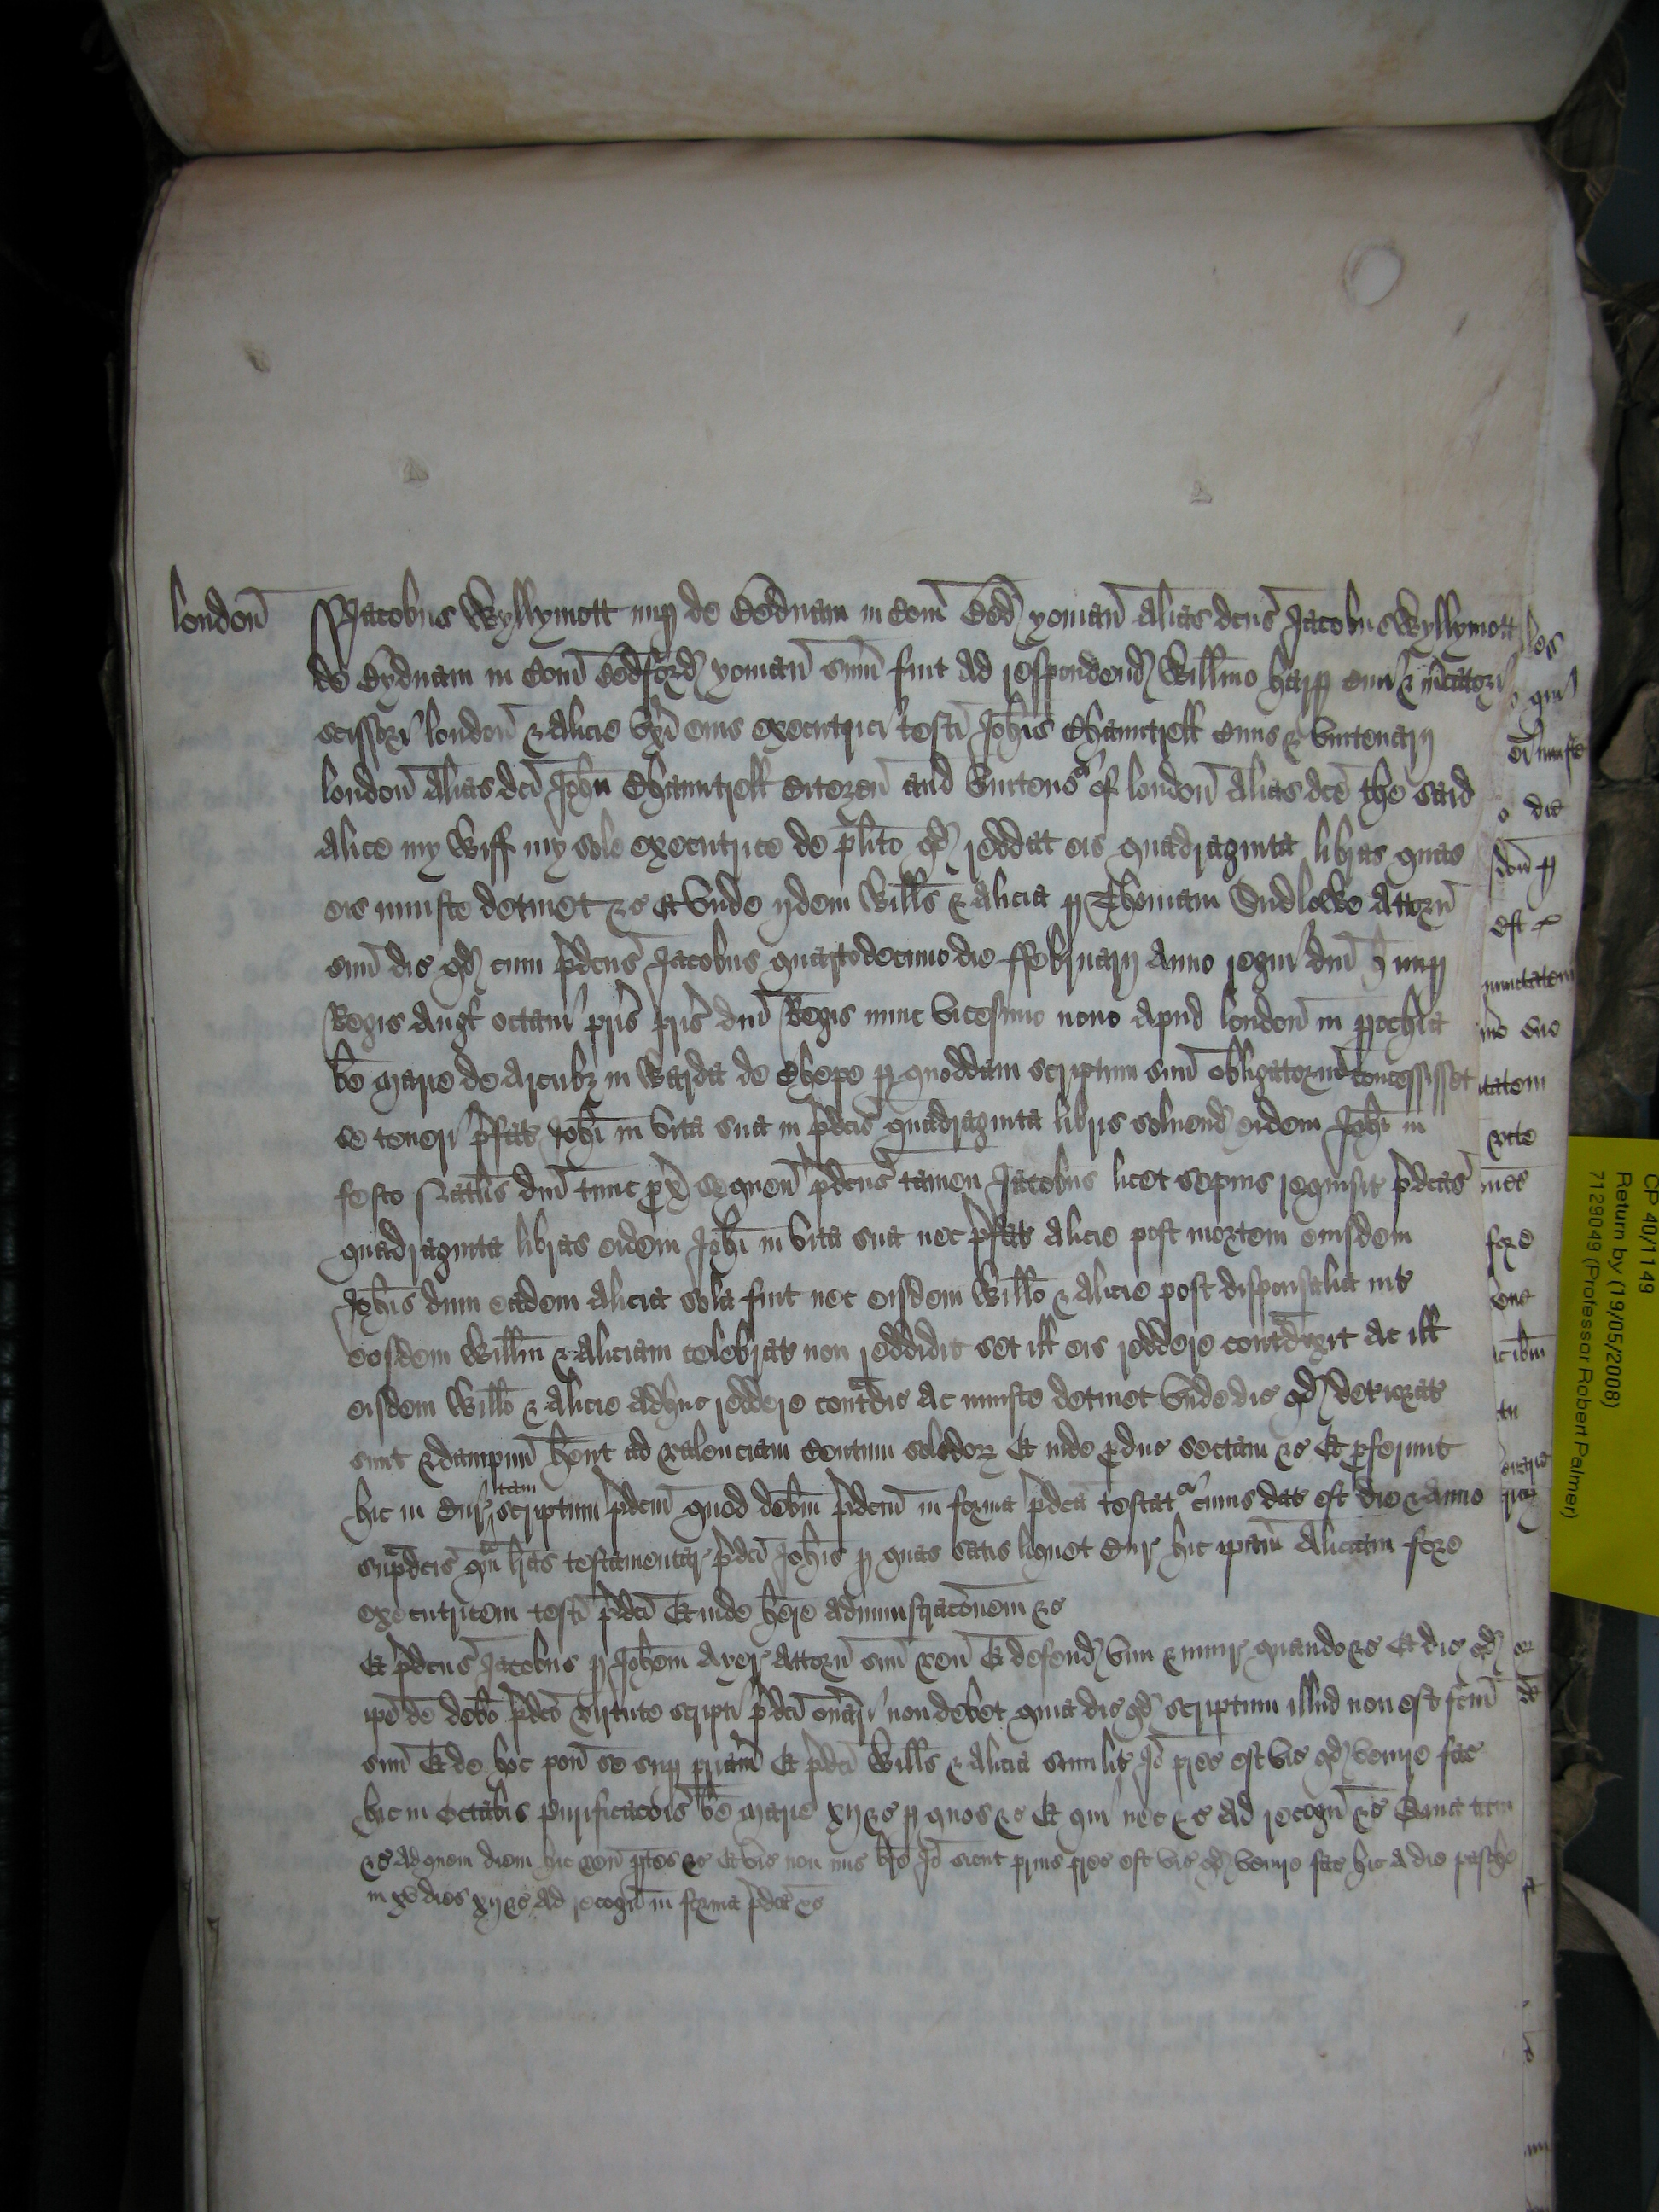 londoñ Jacobus Wyllymott nup de Eodnam in Com̄ Bed yomañ alias dcus Jacobus Wyllymott
de Eydnam in Com̄ Bedford yomañ sum̄ fuit ad respondend Willmo harp Civi & mcatori
scissori londoñ & Alicie uxi eius executrici testi Johis Chauntrell Civis & vintenarij
londoñ alias dci John Chauntrell Citezeñ and vintener of londoñ alias dce the said
Alice my wiff my sole executrice de plito qd reddat eis quadraginta libras quas
eis iniuste detinet &c Et unde ijdem Wills & Alicia p Thomam Dudlowe Attorñ
suu dic qd cum pdcus Jacobus quartodecimo die ffebruarij Anno regni dni H nup
Regis Angl octavi pris dni Regis nunc vicesimo nono apud londoñ in pochia
be marie de Arcubz in Warda de Chepe p quoddam scriptum suu obligatoriu concessisset
se teneri pfat Johi in vita sua in pdcis quadraginta libris solvend eidem Johi in
festo Natlis dni tunc px sequeñ pdcus tamen Jacobus licet sepius requisit pdcas
quadraginta libras eidem Johi in vita sua nec pfat Alicie post mortem eiusdem
Johis dum eadem Alicia sola fuit nec eisdem Willo & Alicie post disponsalia int
eosdem Willm & Aliciam celebrat non reddidit set ill eis reddere contradixit ac ill
eisdem Willo & Alicie adhuc reddere contradic ac iniuste detinet unde dic qd deteriorat
sunt & dampnu hent ad valenciam Centum solidorz Et inde pduc sectam &c Et pferunt
hic in Cur tam scriptum pdcm quod debm pdcm in forma pdca testat cuius dat est die & Anno
supdcis qm lras testamentar pdci Johis p quas satis liquet Cur hic ipam Aliciam fore
executricem testi pdci Et inde here administracoem &c
Et pdcus Jacobus p Johem Ayer Attorñ suu veñ Et defend vim & iniur quando &c Et dic qd
ipe de debo pdco virtute scripti pdci onari non debet quia dic qd scriptum illud non est fcm
suu Et de hoc poñ se sup priam Et pdci Wills & Alicia similit Io prec est vic qd venire fac
hic in Octabis purificacois be marie xij &c p quos &c Et qui nec &c ad recogñ &c Quia tam
&c ad quem diem hic veñ ptes &c Et vic non mis bre Io sicut prius prec est vic qd venire fac hic a die pasche
in xv dies xij &c ad recogñ in forma pdca &c
CP 40/1149
Return by (19/05/2008)
7129049 (Professor Robert Palmer)